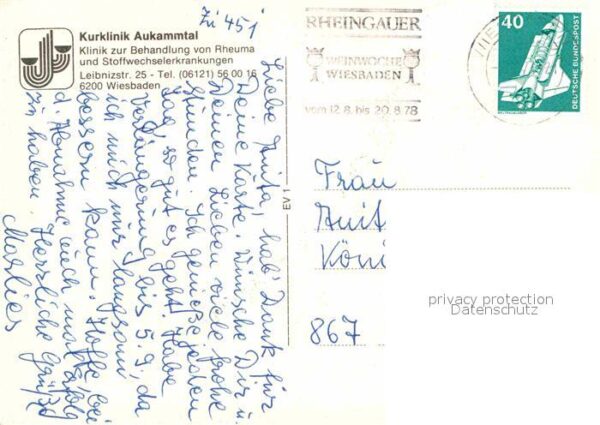 Zi 451
Kurklinik Aukammtal
Klinik zur Behandlung von Rheuma
und Stoffwechselerkrankungen
Leibnizstr. 25 - Tel. (06121) 56 00 16
6200 Wiesbaden
Liebe Anita, hab' Dank für
Deine Karte. Wünsche Dir u.
Deinen Lieben viele frohe
Stunden. Ich genieße jeden
Tag, so gut es geht. Habe
Verlängerung bis 5.9., da
ich mich nur langsam
bessern kann. Hoffe, bei
d. Abnahme auch mal Erfolg
zu haben. Herzliche Grüße
Marlies
EV 1
RHEINGAUER
WEINWOCHE
WIESBADEN
vom 12.8. bis 20.8.78
40
DEUTSCHE BUNDESPOST
WELTRAUMLABOR
Frau
Anit
Köni
867
privacy protection
Datenschutz